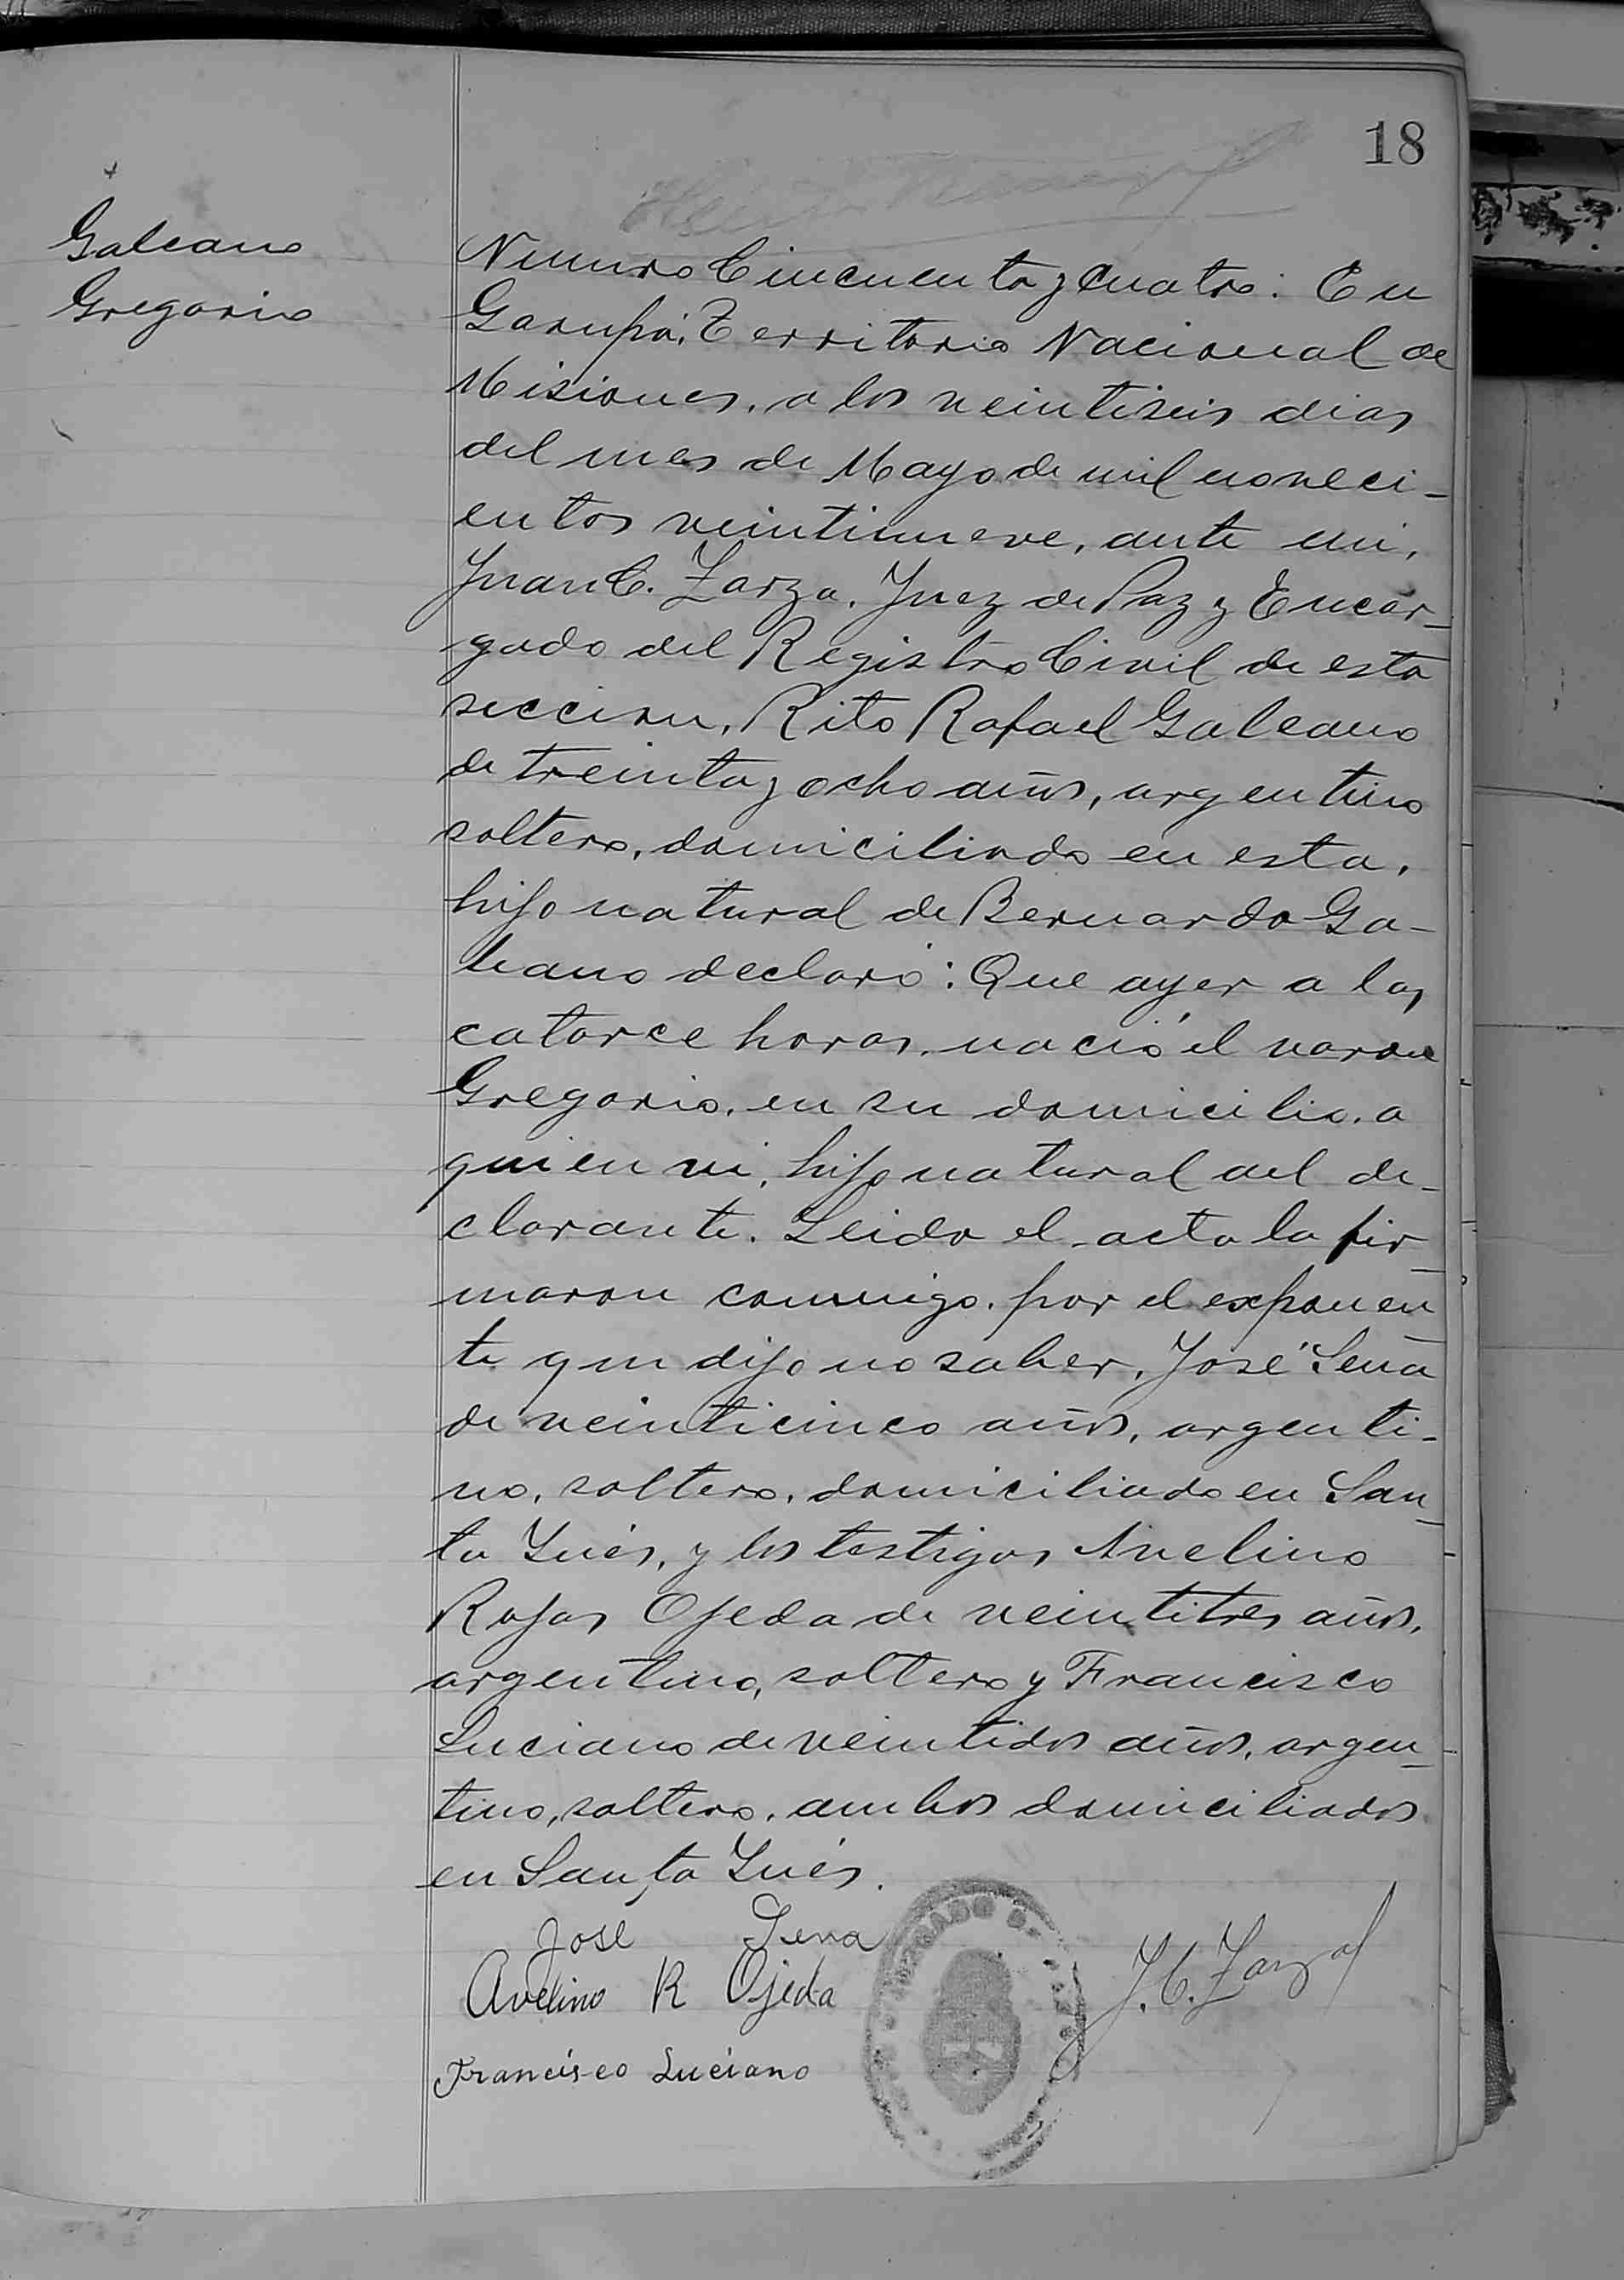 18
Galeano
Gregorio
Numero Cincuenta y Cuatro: En
Garupá, Territorio Nacional de
Misiones, a los veintiseis dias
del mes de Mayo de mil noveci-
entos veintinueve, ante mi,
Juan C. Zarza, Juez de Paz y Encar-
gado del Registro Civil de esta
seccion, Rito Rafael Galeano
de treinta y ocho años, argentino
soltero, domiciliado en esta,
hijo natural de Bernarda Ga-
leano declaró: Que ayer a las
catorce horas, nació el varon
Gregorio, en su domicilio, a
quien vi, hijo natural del de-
clarante. Leida el acta la fir-
maron conmigo, por el exponen-
te que dijo no saber, José Sena
de veinticinco años, argenti-
no, soltero, domiciliado en San-
ta Inés, y los testigos Avelino
Rojas Ojeda de veintitres años,
argentino, soltero y Francisco
Luciano de veintidos años, argen-
tino, soltero, ambos domiciliados
en Santa Inés.
José Sena
Avelino R Ojeda
J. C. Zarza
Francisco Luciano